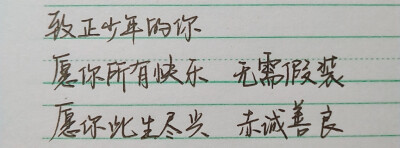 致正少年的你
愿你所有快乐 无需假装
愿你此生尽兴 赤诚善良